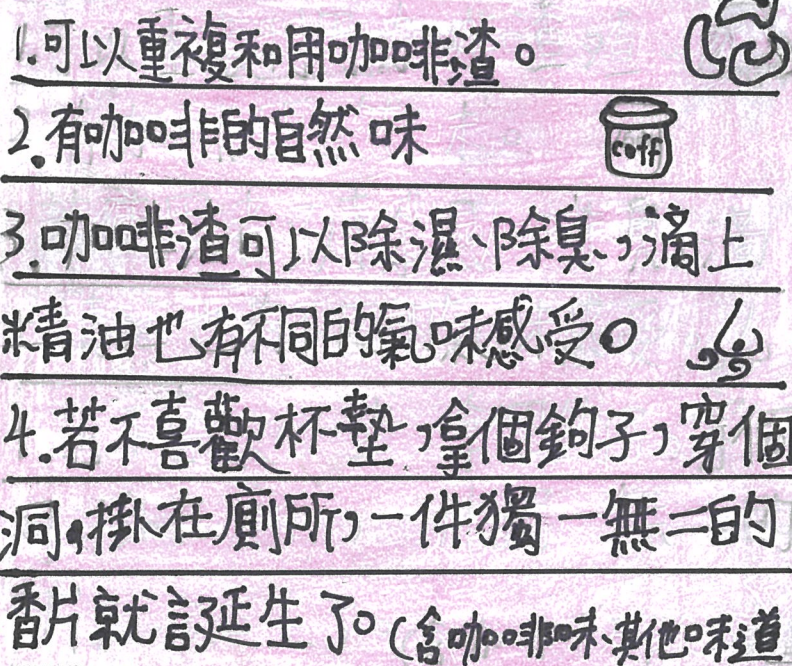 1.可以重複和用咖啡渣。
2.有咖啡的自然味
coff
3.咖啡渣可以除濕、除臭，滴上
精油也有不同的氣味感受。
4.若不喜歡杯墊，拿個鉤子，穿個
洞，掛在廁所，一件獨一無二的
香片就誕生了。(含咖啡味、其他味道